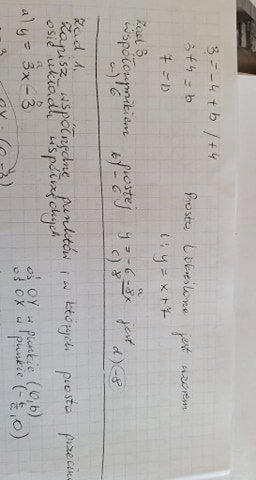 3 = -4 + b /+4
3 + 4 = b
7 = b
Prosta l określona jest wzorem
l: y = x + 7
Zad 3
Współczynnikiem prostej y = -6 - 8x jest
a
a) 6 b) -6 c) 8 d) -8
Zad 1.
Zapisz współrzędne punktów, w których prosta przecina
osie układu współrzędnych
a b
a) y = 3x - 3
oś OY w punkcie (0, b)
oś OX w punkcie (-b/a, 0)